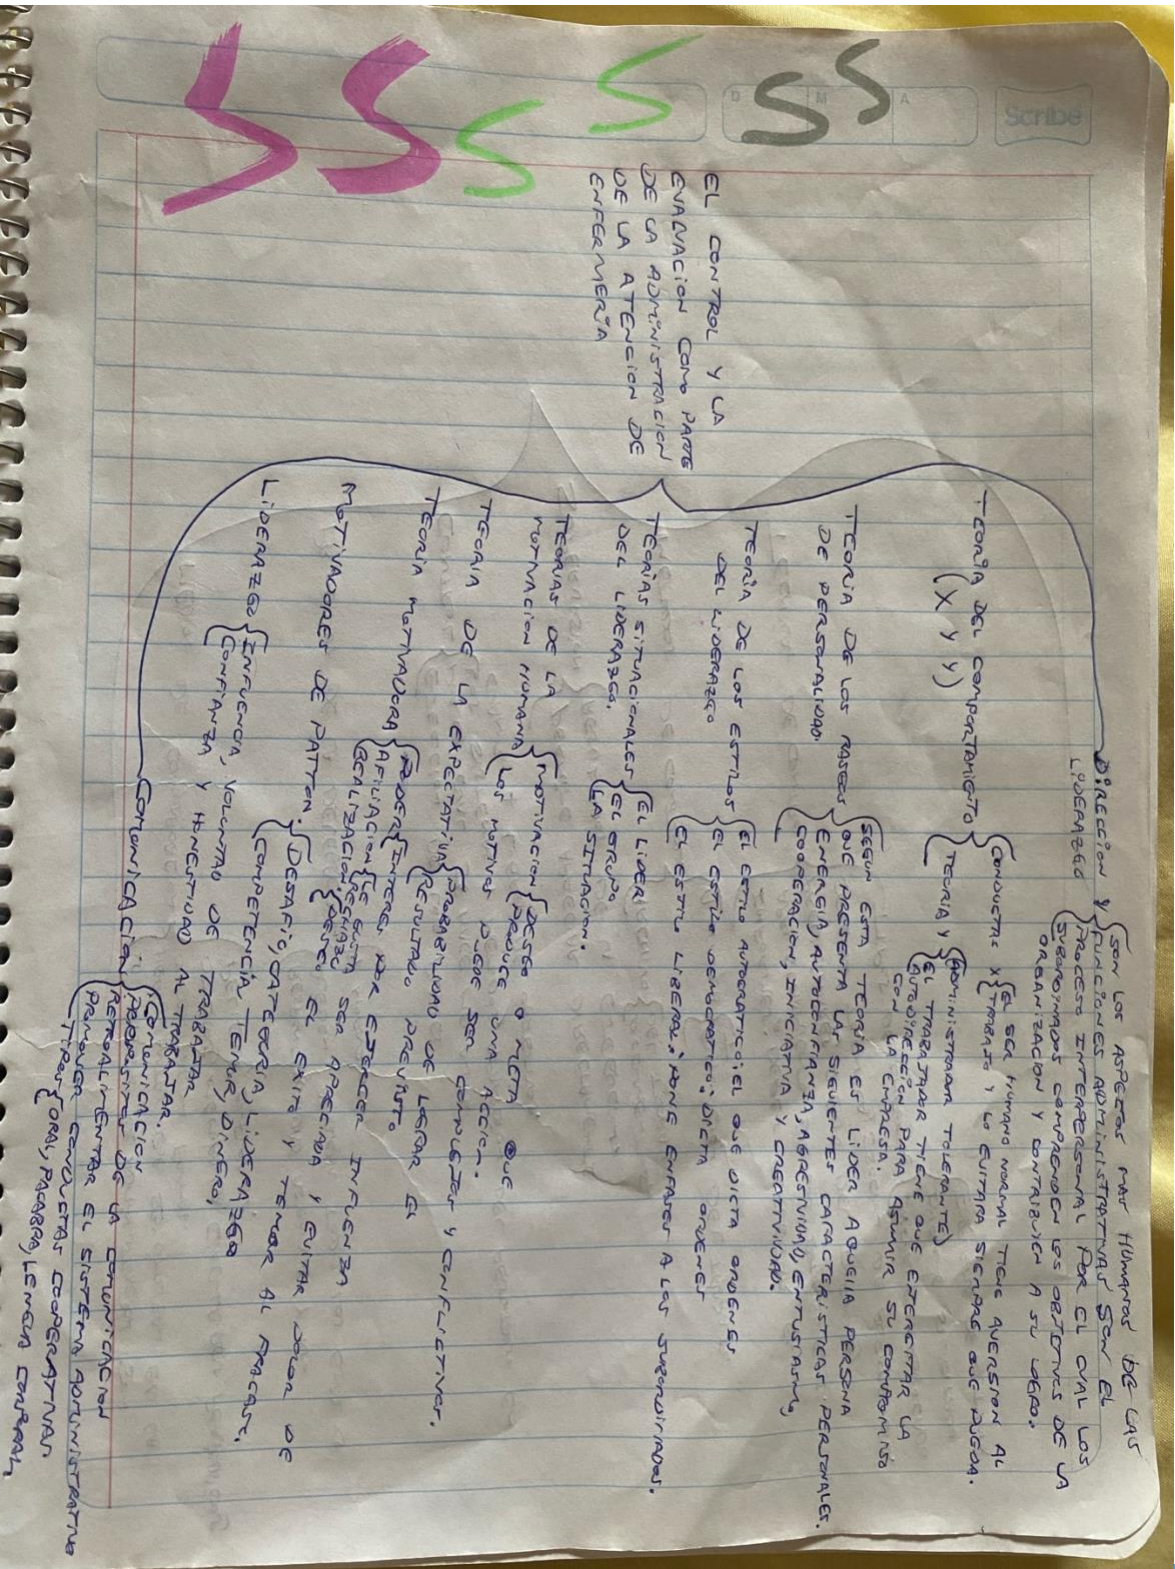 Scribe
D
M
A
S S S S S S
EL CONTROL Y LA
EVALVACION COMO PARTE
DE LA ADMINISTRACION
DE LA ATENCION DE
ENFERMERIA
DIRECCION Y
LIDERAZGO
SON LOS ASPECTOS MAS HUMANOS DE LAS
FUNCIONES ADMINISTRATIVAS SON EL
PROCESO INTERPERSONAL POR EL CUAL LOS
SUBORDINADOS COMPRENDEN LOS OBJETIVOS DE LA
ORGANIZACION Y CONTRIBUIEN A SU LOGRO.
TEORIA DEL COMPORTAMIENTO
(X Y Y)
CONDUCTA X
EL SER HUMANO NORMAL TIENE AVERSION AL
TRABAJO Y LO EVITARA SIEMPRE QUE PUEDA.
TEORIA Y
ADMINISTRADOR TOLERANTE)
EL TRABAJADOR TIENE QUE EJERCITAR LA
AUTODIRECCION PARA ASUMIR SU COMPROMISO
CON LA EMPRESA.
TEORIA DE LOS RASGOS
DE PERSONALIDAD.
SEGUN ESTA TEORIA ES LIDER AQUELLA PERSONA
QUE PRESENTA LAS SIGUIENTES CARACTERISTICAS PERSONALES.
ENERGIA, AUTOCONFIANZA, AGRESIVIDAD, ENTUSIASMO,
COOPERACION, INICIATIVA Y CREATIVIDAD.
TEORIA DE LOS ESTILOS
DEL LIDERAZGO
EL ESTILO AUTOCRATICO: EL QUE DICTA ORDENES
EL ESTILO DEMOCRATICO: DICTA ORDENES
EL ESTILO LIBERAL: PONE ENFASES A LOS SUBORDINADOS.
TEORIAS SITUACIONALES
DEL LIDERAZGO.
EL LIDER
EL GRUPO
LA SITUACION.
TEORIAS DE LA
MOTIVACION HUMANA
MOTIVACION
DESEO O META QUE
PRODUCE UNA ACCION.
LOS MOTIVOS PUEDE SER COMPLEJOS Y CONFLICTIVOS.
TEORIA DE LA EXPECTATIVA
PROBABILIDAD DE LOGRAR EL
RESULTADO PREVISTO.
TEORIA MOTIVADORA
PODER
INTERES POR EJERCER INFLUENZA
AFILIACION
LE GUSTA SER APRECIADA Y EVITAR DOLOR DE
RECHAZO
REALIZACION.
DESEO EL EXITO Y TEMOR AL FRACASO.
MOTIVADORES DE PATTON.
DESAFIO, CATEGORIA, LIDERAZGO
COMPETENCIA, TEMOR, DINERO,
LIDERAZGO
INFUENCIA, VOLUNTAD DE TRABAJAR
CONFIANZA Y HONESTIDAD AL TRABAJAR.
COMUNICACION
COMUNICACION
PROPOSITOS DE LA COMUNICACION
RETROALIMENTAR EL SISTEMA ADMINISTRATIVO
PROMOVER CONDUCTAS COOPERATIVAS
TIPOS
ORAL, PALABRA, LENGUA CORPORAL,